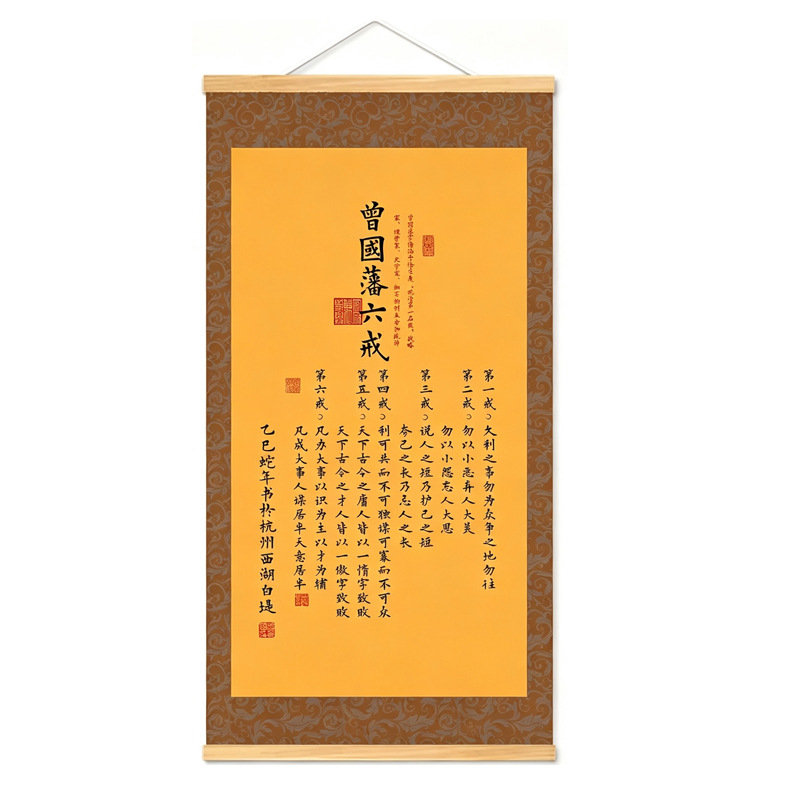 曾國藩六戒
家、理学家、文学家、湘军的创立者和统帅
第一戒）久利之事勿为众争之地勿往
第二戒）勿以小恶弃人大美
勿以小怨忘人大恩
第三戒）说人之短乃护己之短
夸己之长乃忌人之长
第四戒）利可共而不可独谋可寡而不可众
第五戒）天下古今之庸人皆以一惰字致败
天下古今之才人皆以一傲字致败
第六戒）凡办大事以识为主以才为辅
凡成大事人谋居半天意居半
乙巳蛇年书于杭州西湖白堤